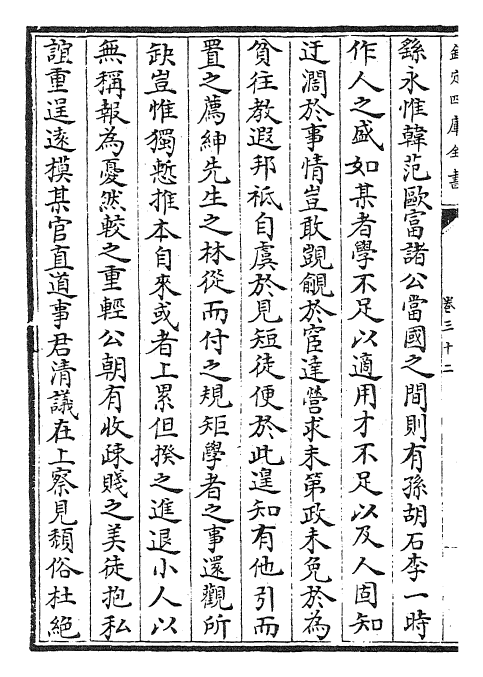 欽定四庫全書
卷三十二
繇永惟韓范歐富諸公當國之間則有孫胡石李一時
作人之盛如某者學不足以適用才不足以及人固知
迂濶於事情豈敢覬覦於宦達營求未第政未免於為
貧往教遐邦祗自虞於見短徒便於此遑知有他引而
置之薦紳先生之林從而付之規矩學者之事還觀所
缺豈惟獨慙推本自來或者上累但揆之進退小人以
無稱報為憂然較之重輕公朝有收疎賤之美徒抱私
誼重逞遠模某官直道事君清議在上察見頽俗杜絶